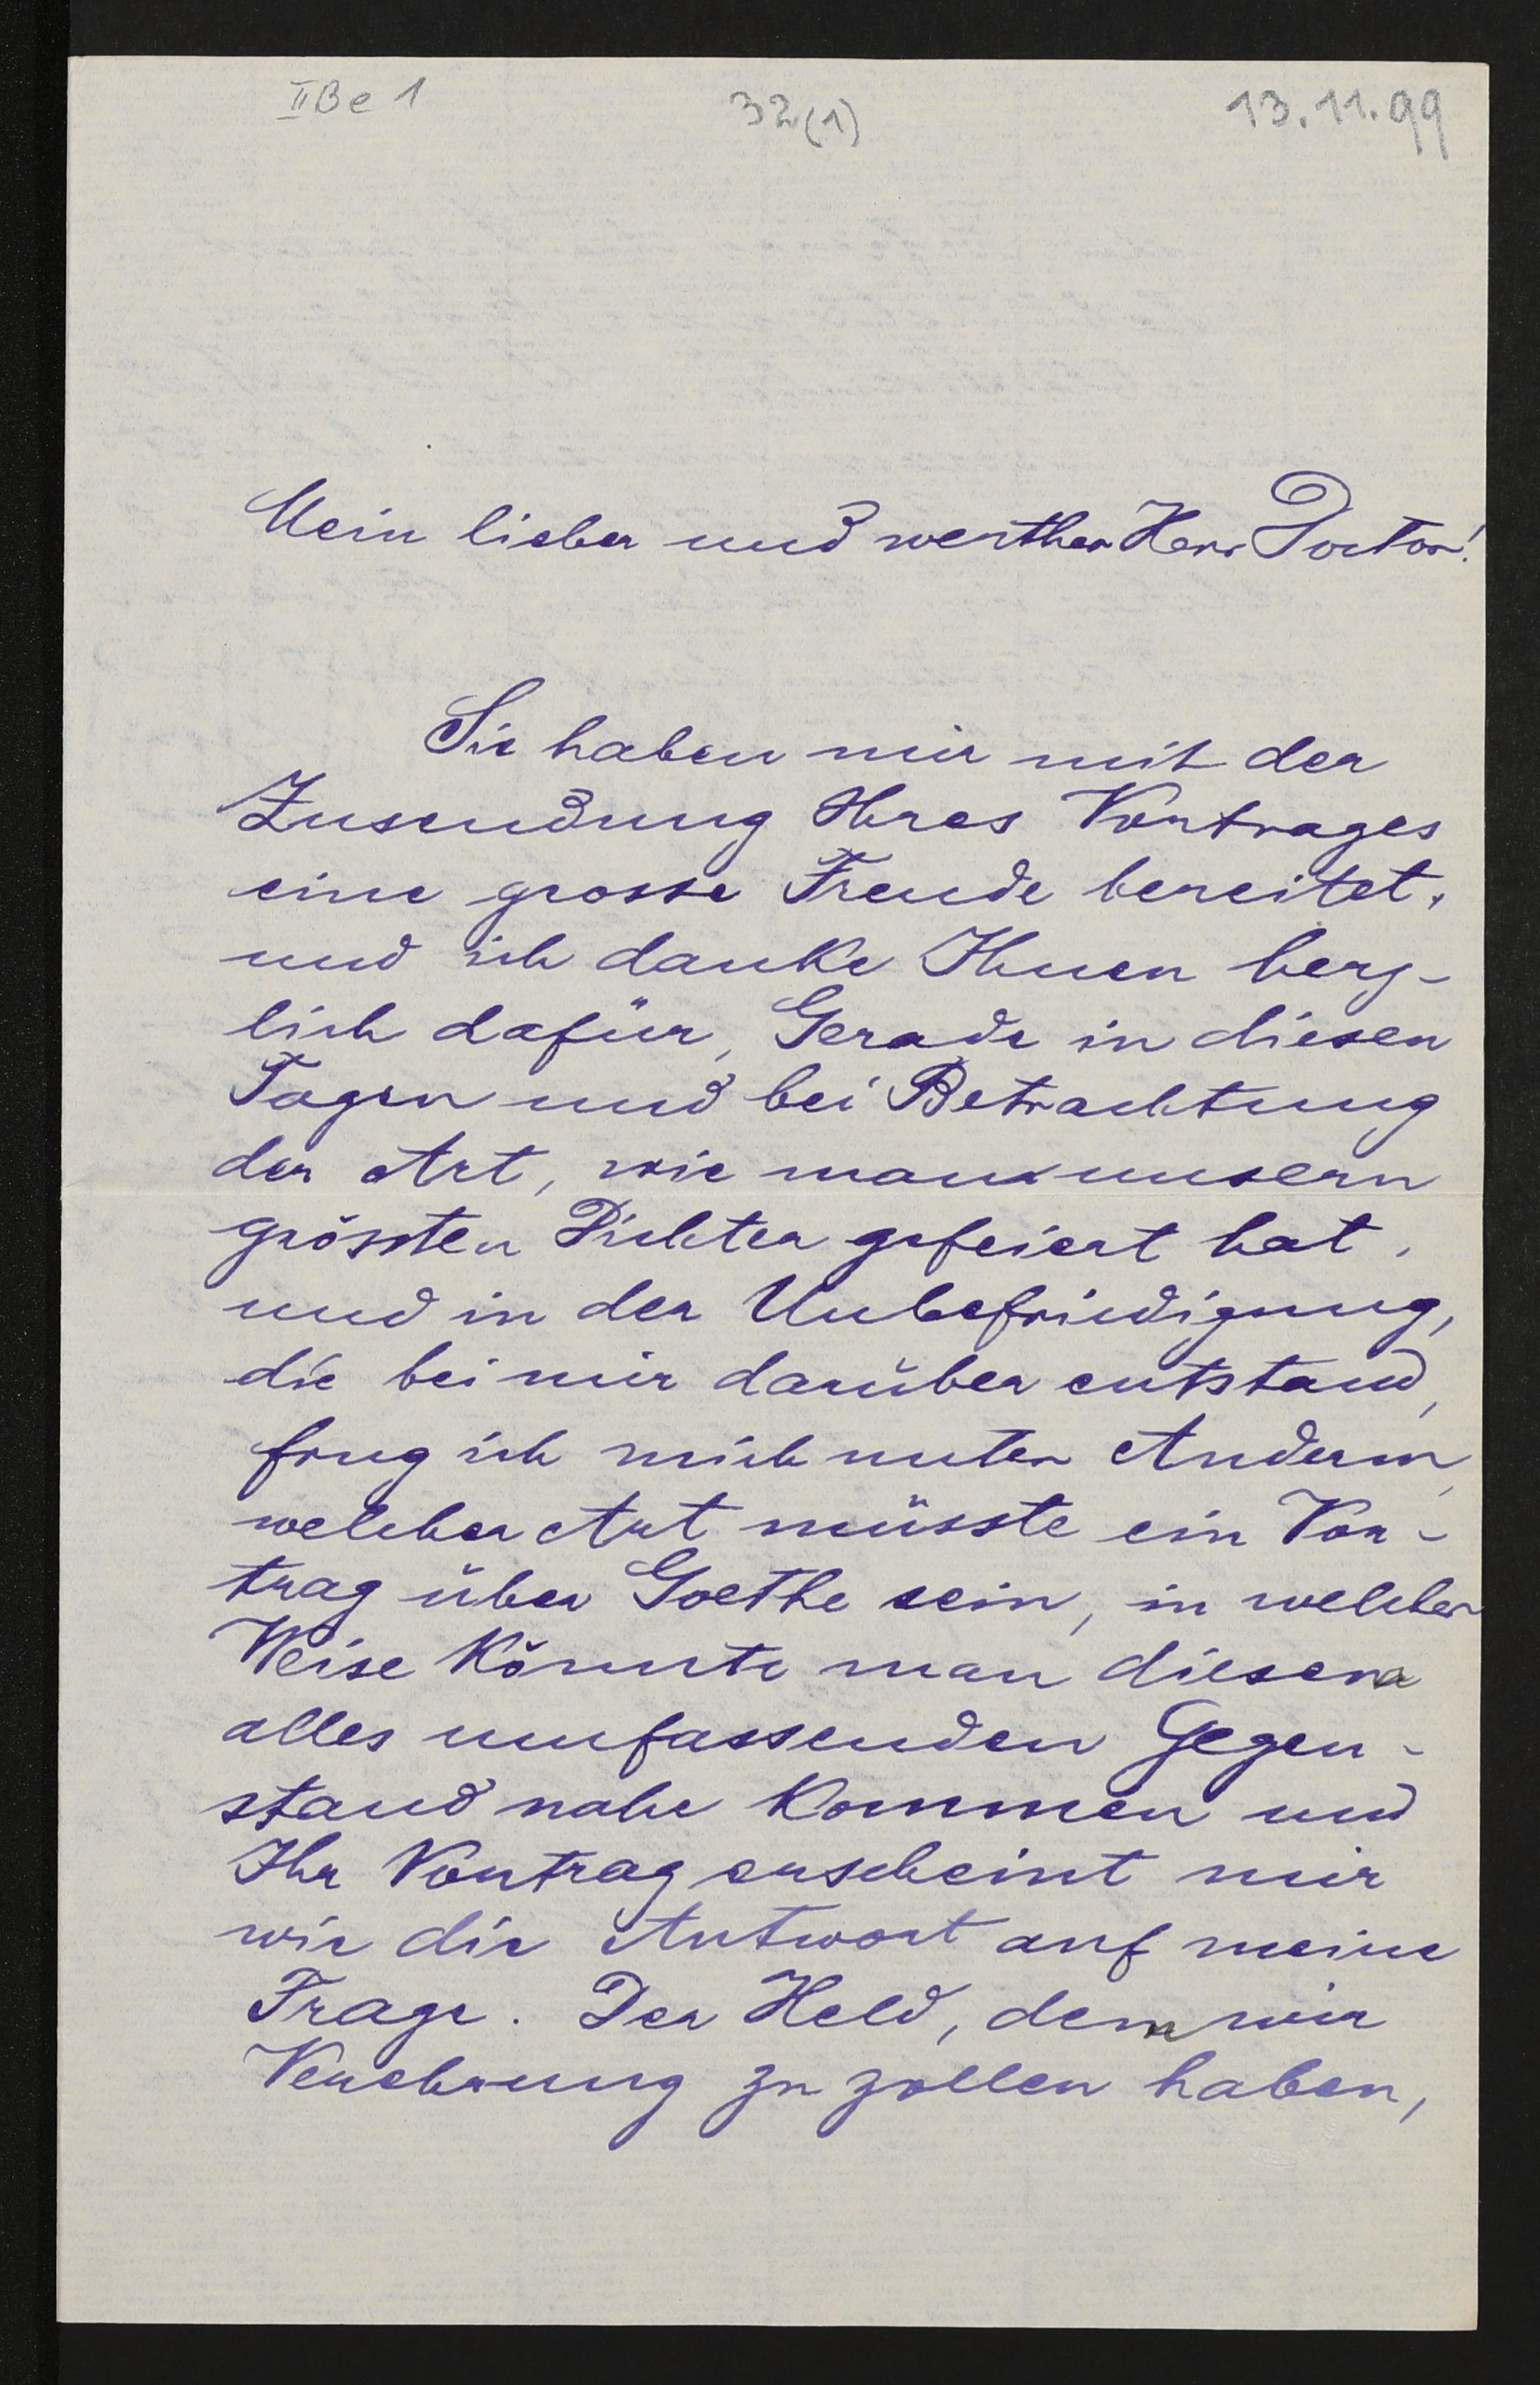 IIBe 1 32(1) 13.11.99
Mein lieber und werther Herr Doctor!
Sie haben mir mit der
Zusendung Ihres Vortrages
eine grosse Freude bereitet,
und ich danke Ihnen herz-
lich dafür, Gerade in diesen
Tagen und bei Betrachtung
der Art, wie man unsern
grössten Dichter gefeiert hat,
und in der Unbefriedigung,
die bei mir darüber entstand,
frug ich mich unter Anderm,
welcher Art müsste ein Vor-
trag über Goethe sein, in welcher
Weise könnte man diesem
alles umfassenden Gegen-
stand nahe kommen und
Ihr Vortrag erscheint mir
wie die Antwort auf meine
Frage. Der Held, dem wir
Verehrung zu zollen haben,